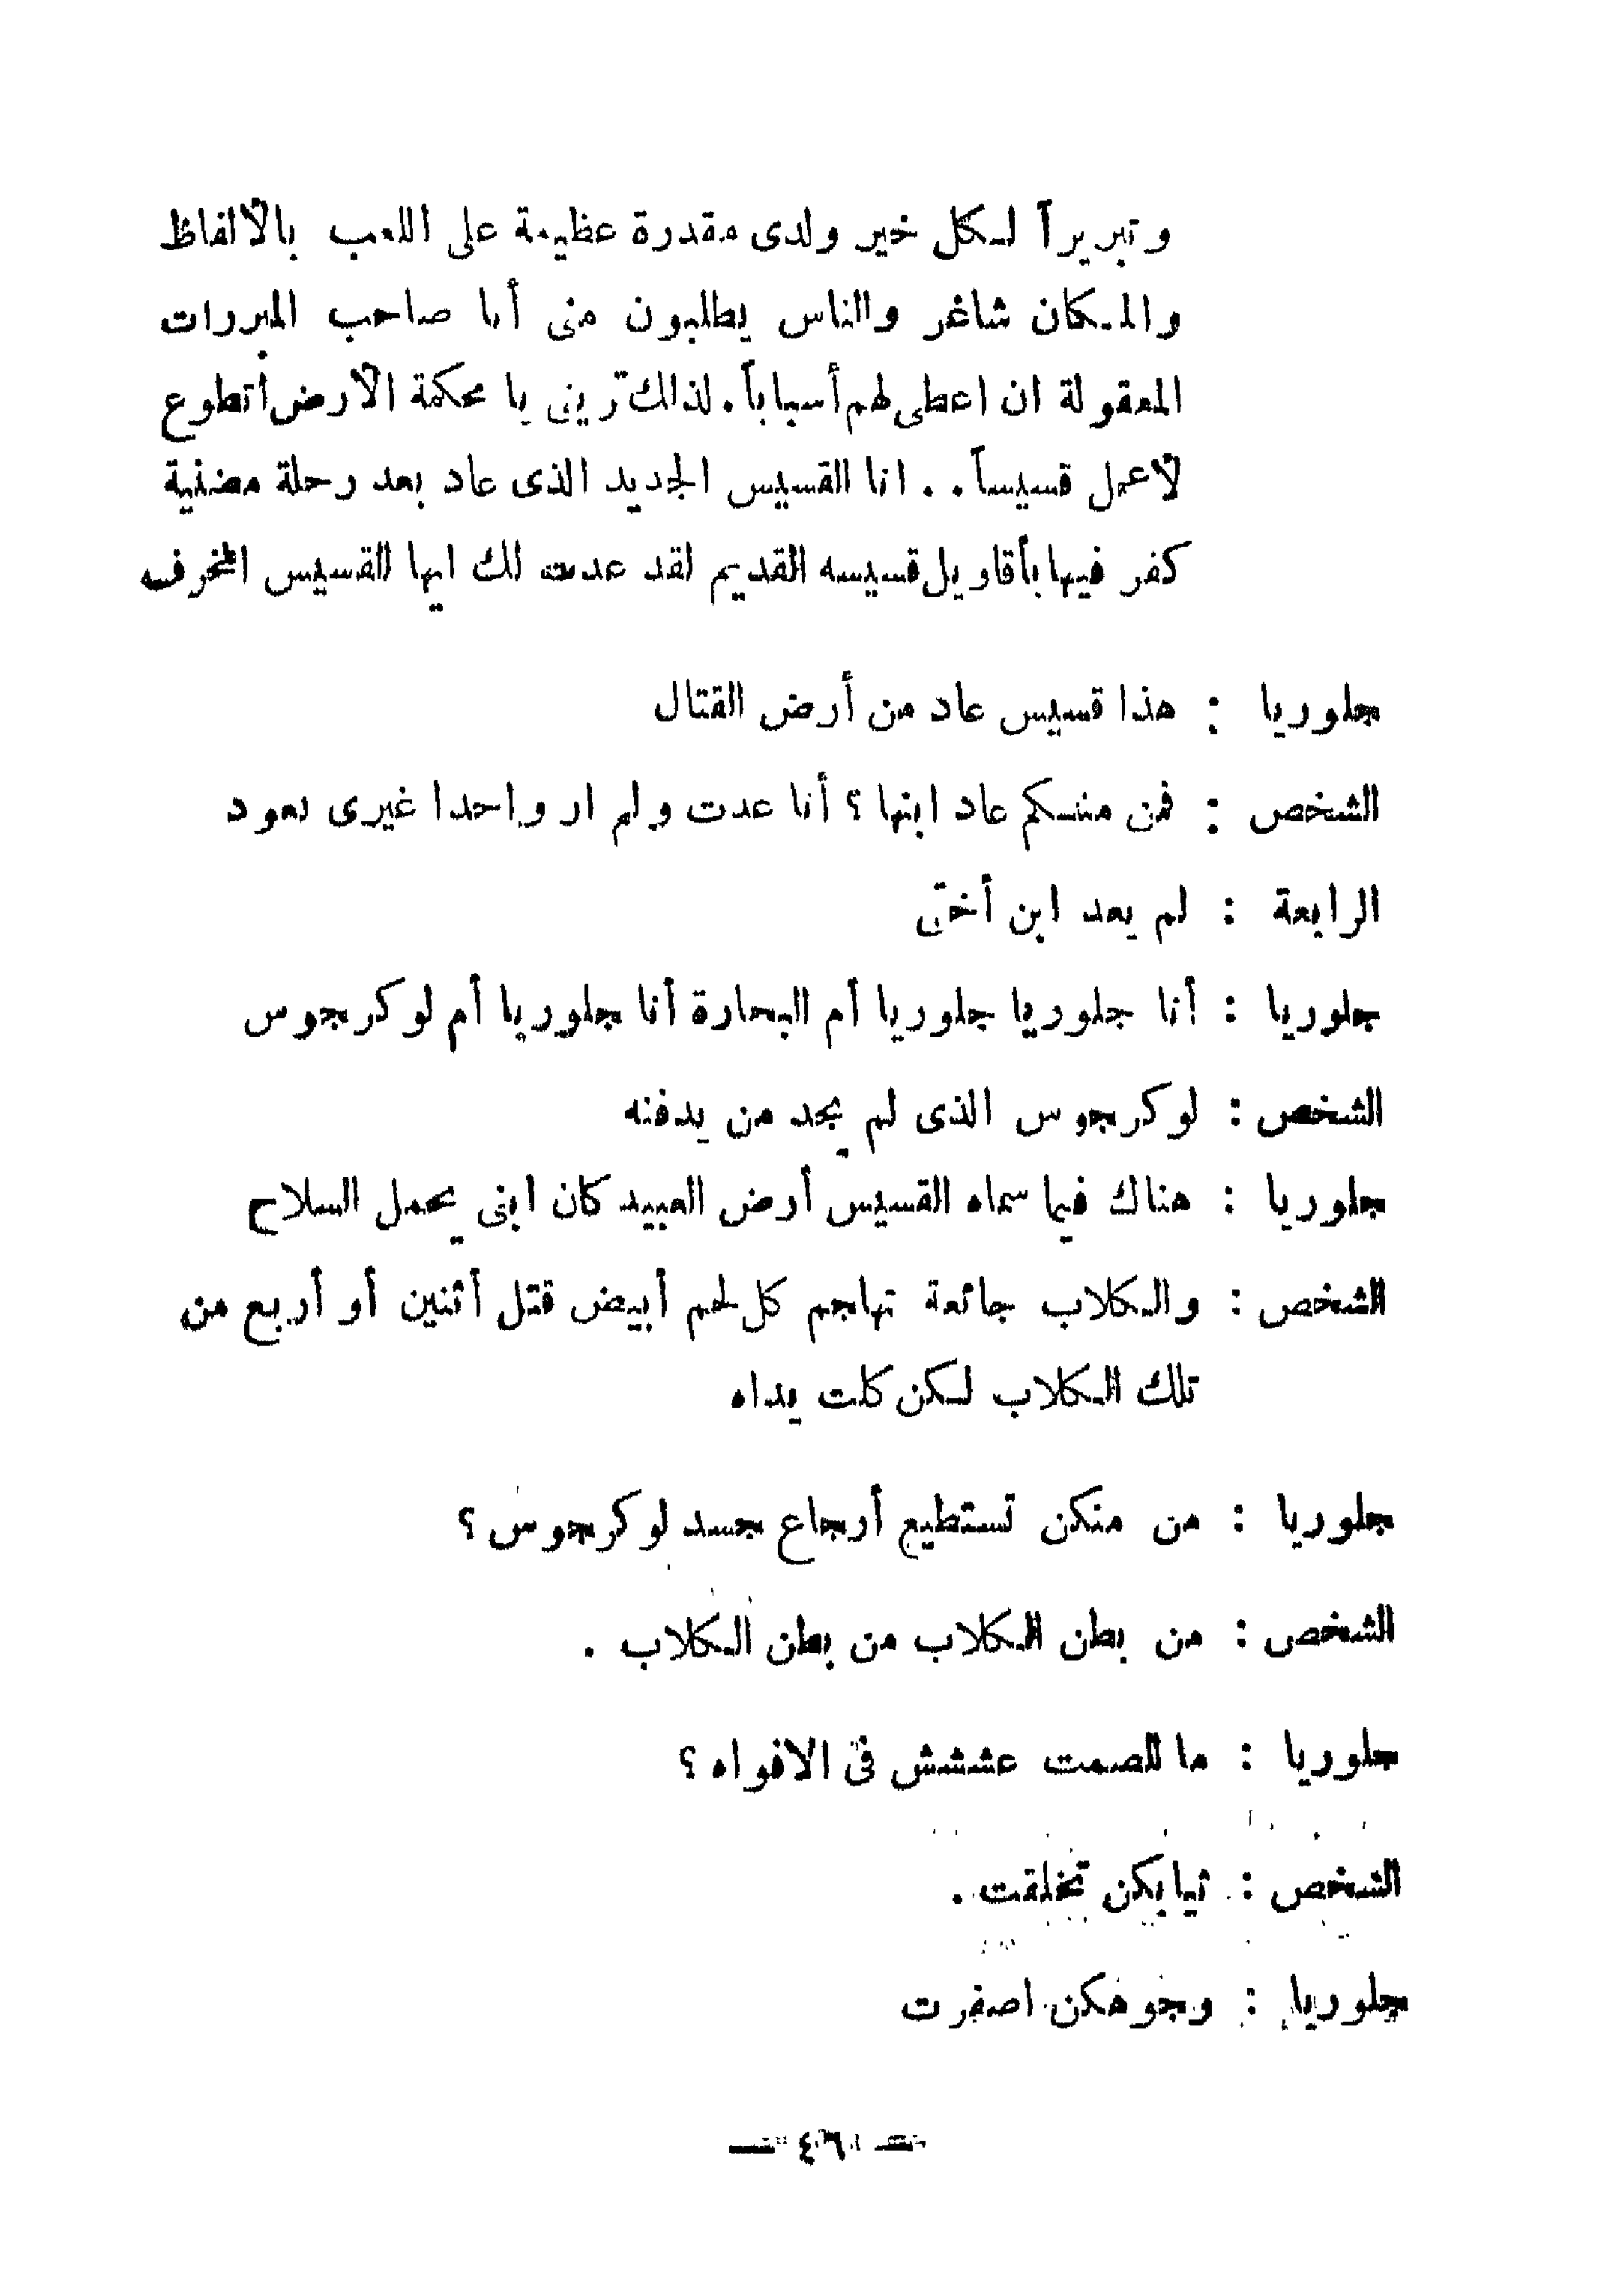 وتبريراً لكل خير ولدى مقدرة عظيمة على اللعب بالألفاظ
والمكان شاغر والناس يطلبون منى أنا صاحب المبررات
المعقولة ان اعطى لهم أسباباً. لذلك ترينى يا محكمة الأرض أتطوع
لأعمل قسيساً . . انا القسيس الجديد الذى عاد بعد رحلة مضنية
كفر فيها بأقاويل قسيسه القديم لقد عدت لك ايها القسيس المخرف
جلوريا : هذا قسيس عاد من أرض القتال
الشخص : فمن منكم عاد ابنها ؟ أنا عدت ولم ار واحدا غيرى يعود
الرابعة : لم يعد ابن أختى
جلوريا : أنا جلوريا جلوريا أم البحارة أنا جلوريا أم لوكرجوس
الشخص : لوكرجوس الذى لم يجد من يدفنه
جلوريا : هناك فيما سماه القسيس أرض العبيد كان ابنى يحمل السلاح
الشخص : والكلاب جائعة تهاجم كل لحم أبيض قتل أثنين أو أربع من
تلك الكلاب لكن كلت يداه
جلوريا : من منكن تستطيع أرجاع جسد لوكرجوس ؟
الشخص : من بطن الكلاب من بطن الكلاب .
جلوريا : ما للصمت عششش فى الافواه ؟
الشخص : ثيابكن تخلقت .
جلوريا : وجوهكن اصفرت
— ٤٦ —